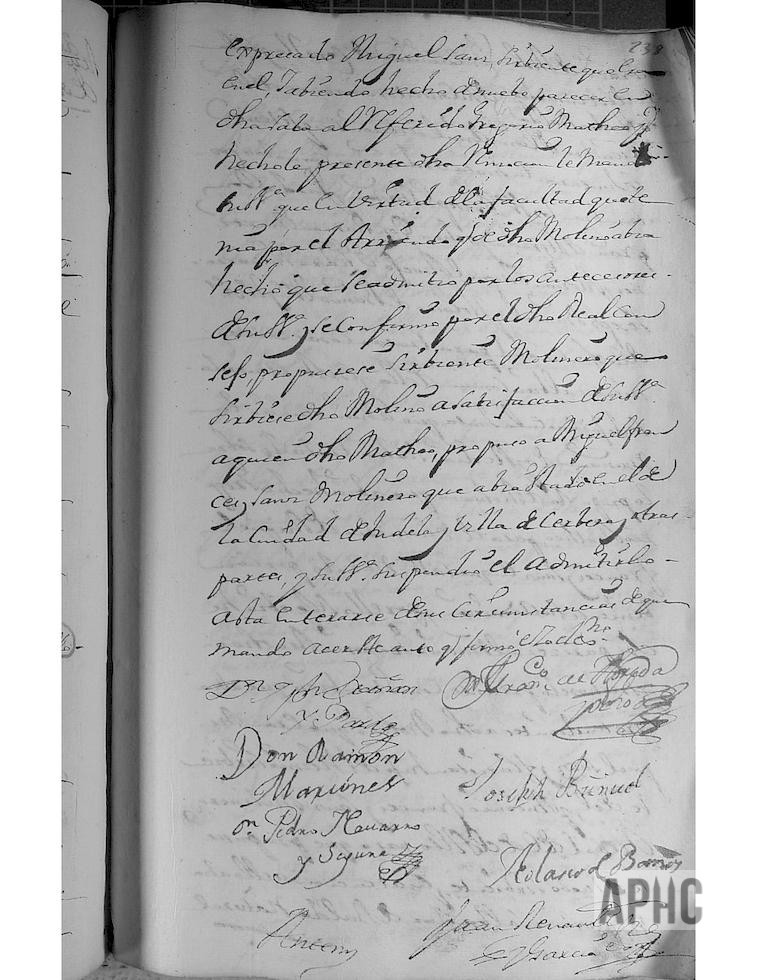 238
expresado Miguel Sanz, Sirbiente que era
en el, Y abiendo hecho de nuebo parecer en
dha sala al Referido Gregorio Matheo y
hechole presente dha Remocion le mando
su Sª que en virtud de la facultad que te
nia por el Arriendo q.e de dho Molino abia
hecho que se admitio por los antecesores
de su Sª y se Confirmo por el dho Real Con
sejo, propusiese Sirbiente Molinero que
Sirbiese dho Molino a satisfaccion de su Sª
a quien dho Matheo, propuso a Miguel fran
ces y Sanz Molinero que abia estado en el de
la Ciudad de tudela y Villa de Cerbera y otras
partes, y su Sª suspendio el Admitirlo
asta enterarse de sus Circunstancias de que
mando acer este auto q.e firmo e Yo el ess.no
Dn Jph
y Pardo
Don Ramon
Martinez
Dn Pedro Navarro
y
Joseph
Juan
Garcia
Antemi
APHC